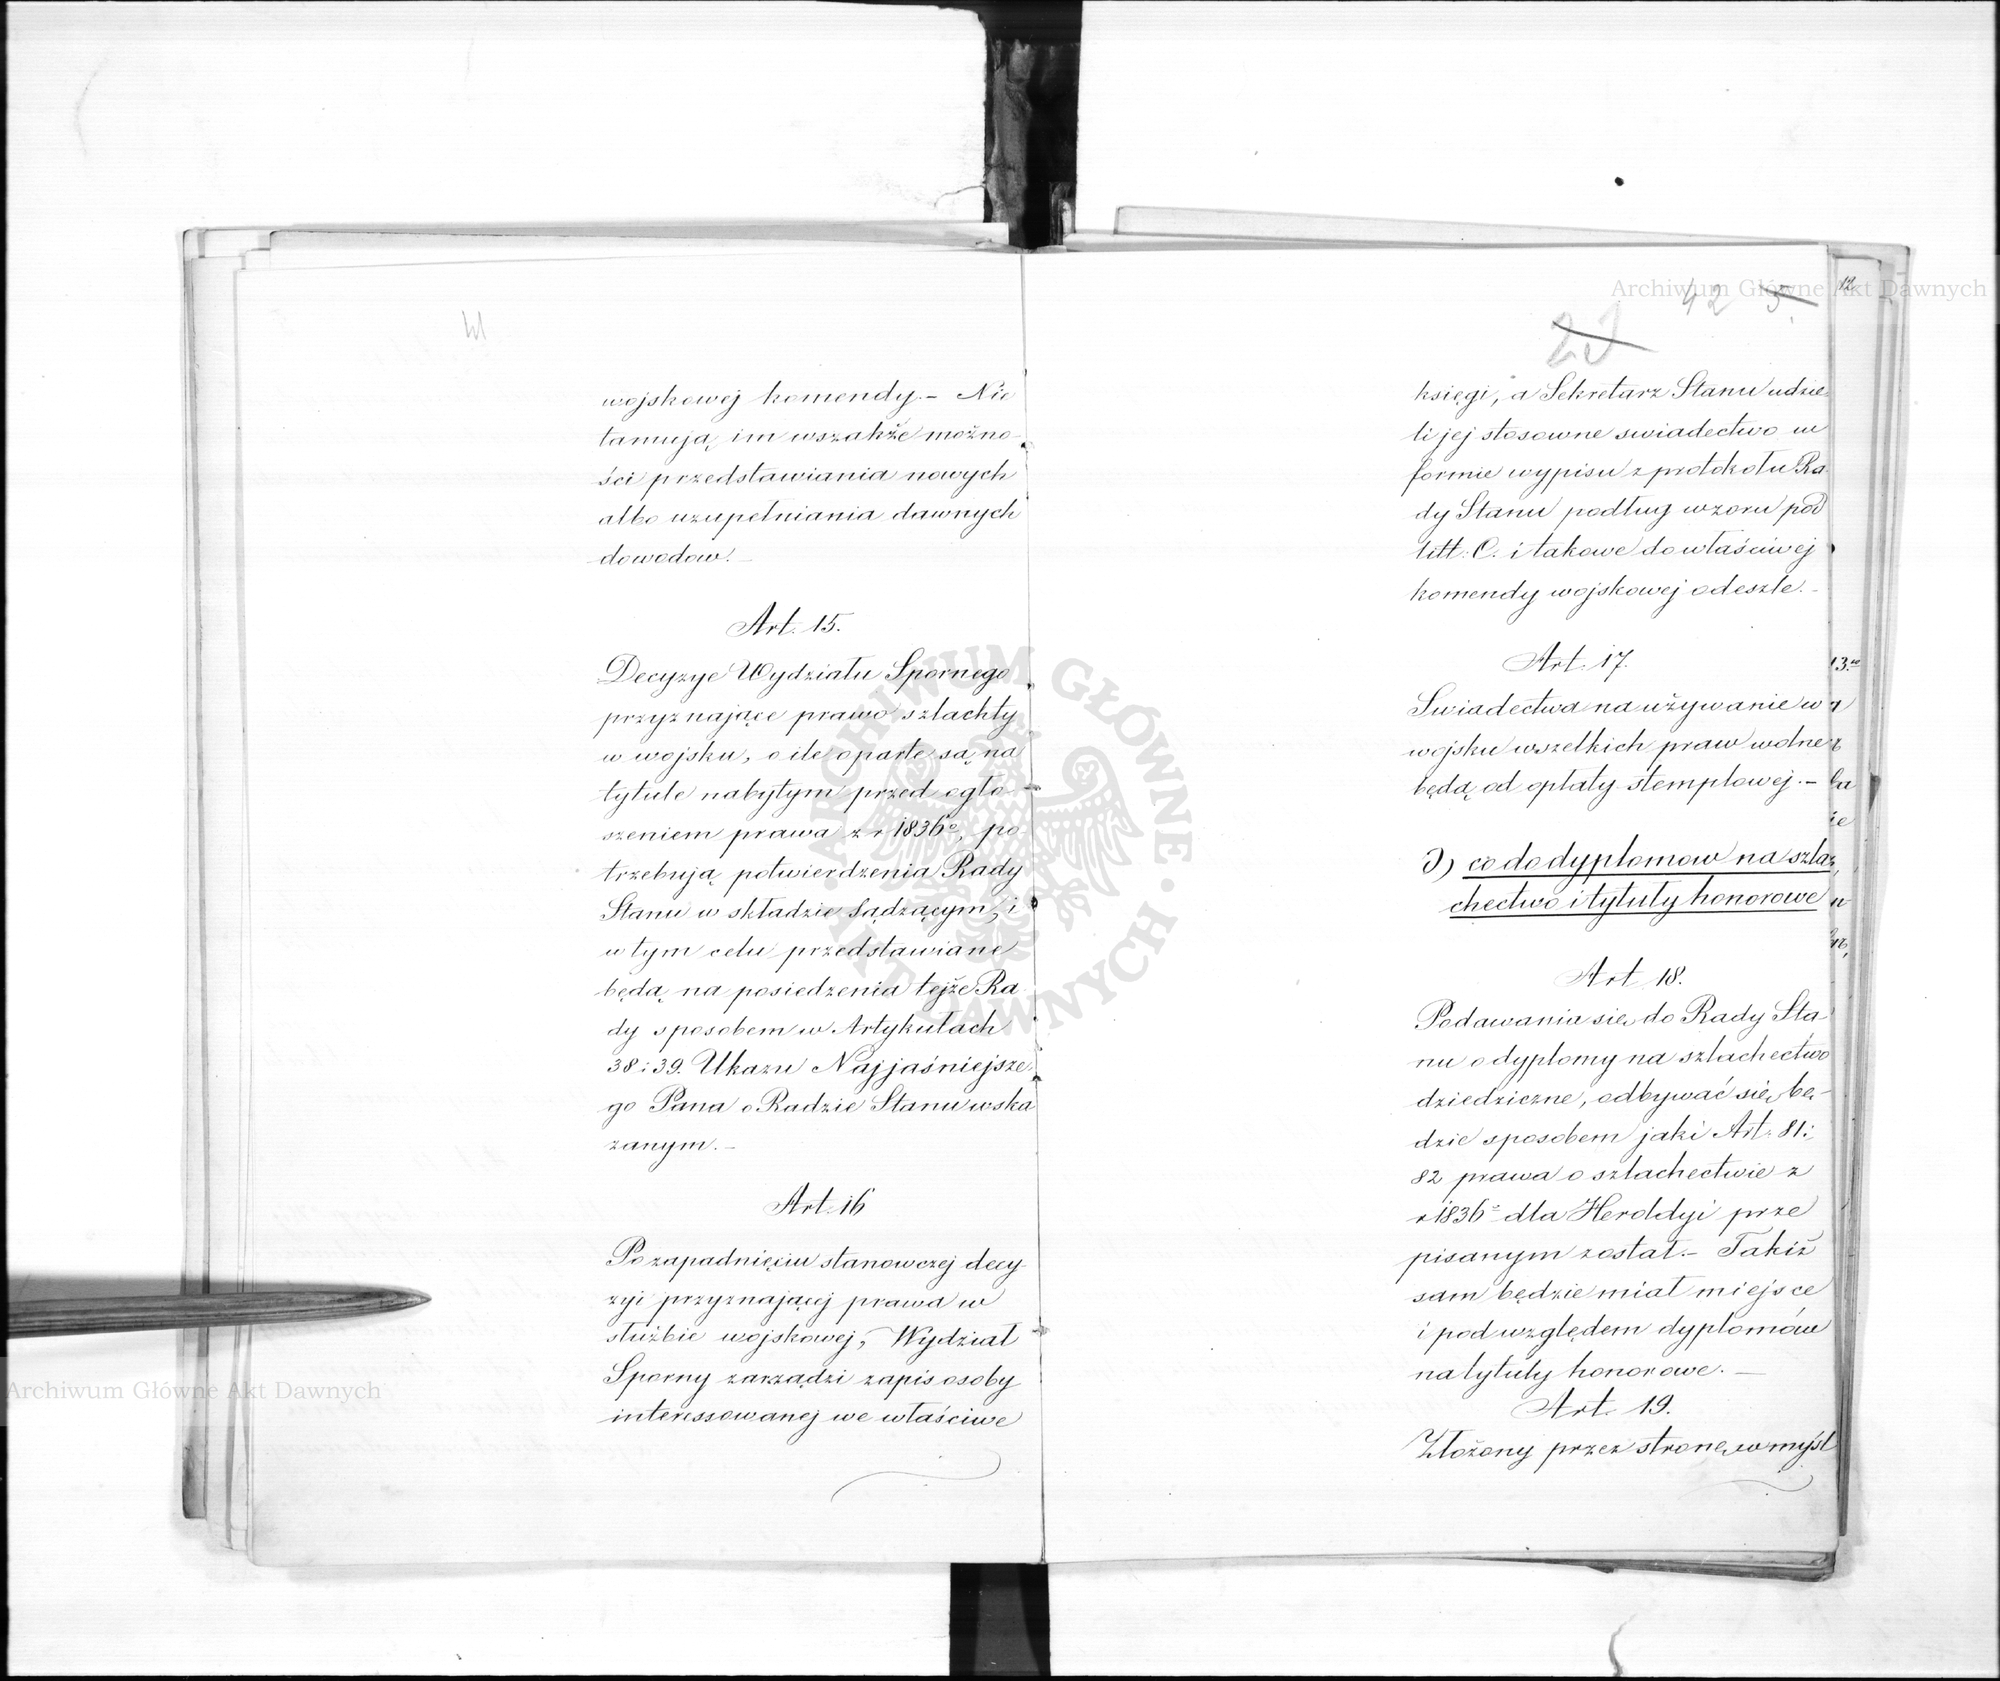 41
wojskowej komendy. – Nie
tamują im wszakże możno-
ści przedstawiania nowych
albo uzupełniania dawnych
dowodow. –
Art. 15.
Decyzye Wydziału Spornego
przyznające prawo szlachty
w wojsku, o ile oparte są na
tytule nabytym przed ogło-
szeniem prawa z r 1836º, po-
trzebują potwierdzenia Rady
Stanu w składzie Sądzącym, i
w tym celu przedstawiane
będą na posiedzenia tejże Ra-
dy sposobem w Artykułach
38 i 39. Ukazu Najjaśniejsze-
go Pana o Radzie Stanu wska
zanym. –
Art. 16
Po zapadnięciu stanowczej decy-
zyi przyznającej prawa w
służbie wojskowej, Wydział
Sporny zarządzi zapis osoby
interessowanej we właściwe
42 5.
księgi, a Sekretarz Stanu udzie-
li jej stosowne swiadectwo w
formie wypisu z protokołu Ra
dy Stanu podług wzoru pod
litt: C. i takowe do właściwej
komendy wojskowej odeszle. –
Art. 17.
Swiadectwa na używanie w
wojsku wszelkich praw wolne
będą od opłaty stemplowej. –
d) co do dyplomow na szla-
chectwo i tytuły honorowe
Art 18.
Podawania się do Rady Sta-
nu o dyplomy na szlachectwo
dziedziczne, odbywać się bę-
dzie sposobem jaki Art. 81 i
82 prawa o szlachectwie z
r 1836º dla Heroldyi prze
pisanym został. – Takiż
sam będzie miał miejsce
i pod względem dyplomów
na tytuły honorowe. –
Art. 19.
Złożony przez stronę w myśl
12
Archiwum Główne Akt Dawnych
Archiwum Główne Akt Dawnych
ARCHIWUM GŁÓWNE AKT DAWNYCH